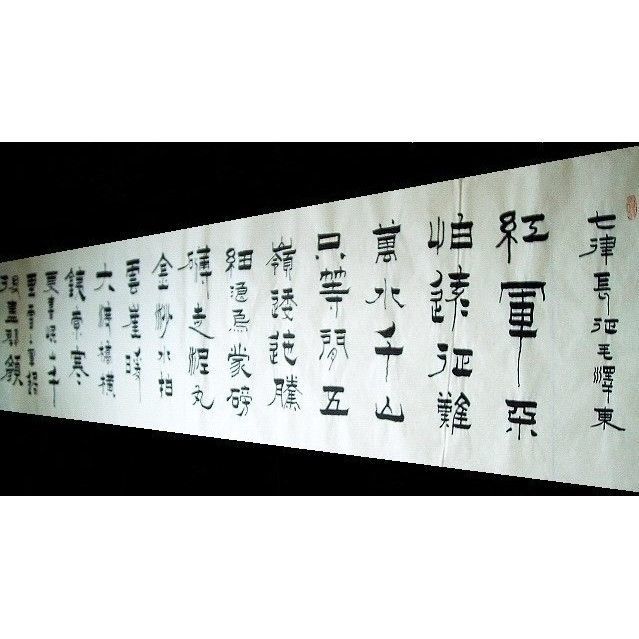 七律長征毛澤東
紅軍不
怕遠征難
萬水千山
只等閒五
嶺逶迤騰
細浪烏蒙磅
礴走泥丸
金沙水拍
雲崖暖
大渡橋橫
鐵索寒
更喜岷山千
里雪三軍過
後盡開顏